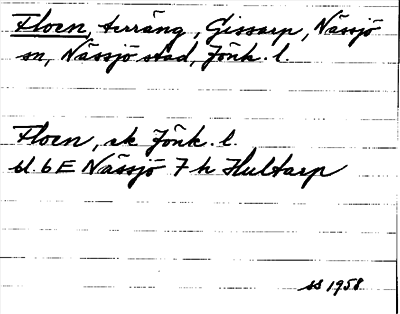 Floen, terräng, Gissarp, Nässjö
sn, Nässjö stad, Jönk. l.
Floen, ak Jönk. l.
bl. 6 E Nässjö 7 h Hultarp
ss 1958